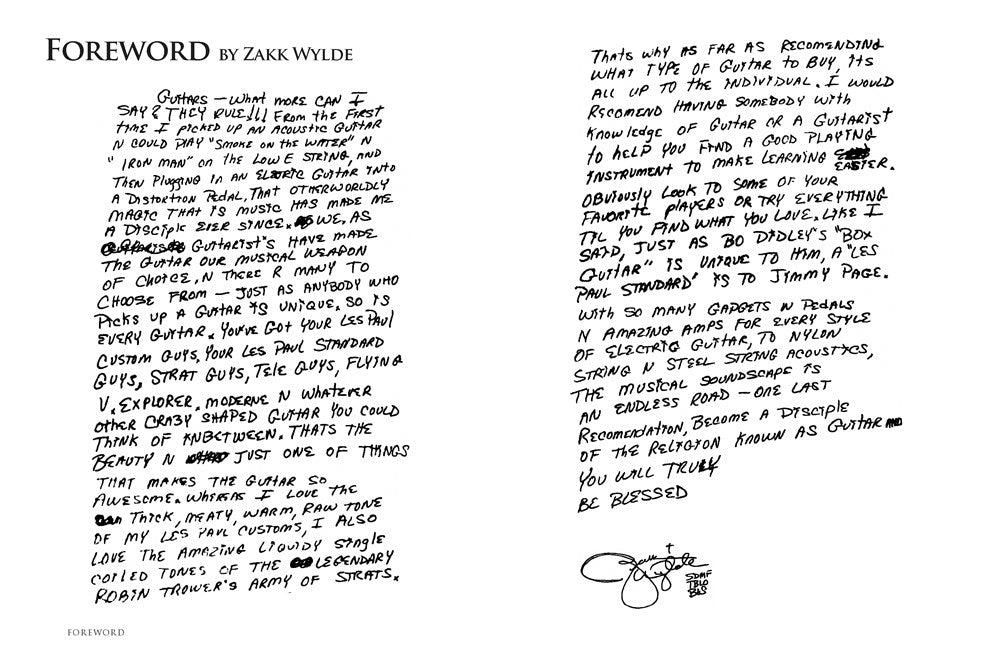 FOREWORD BY ZAKK WYLDE
GUITARS – WHAT MORE CAN I
SAY? THEY RULE!!! FROM THE FIRST
TIME I PICKED UP AN ACOUSTIC GUITAR
N COULD PLAY "SMOKE ON THE WATER" N
"IRON MAN" ON THE LOW E STRING, AND
THEN PLUGGING IN AN ELECTRIC GUITAR INTO
A DISTORTION PEDAL, THAT OTHERWORLDLY
MAGIC THAT IS MUSIC HAS MADE ME
A DISCIPLE EVER SINCE. WE, AS
GUITARIST'S HAVE MADE
THE GUITAR OUR MUSICAL WEAPON
OF CHOICE, N THERE R MANY TO
CHOOSE FROM – JUST AS ANYBODY WHO
PICKS UP A GUITAR IS UNIQUE, SO IS
EVERY GUITAR. YOU'VE GOT YOUR LES PAUL
CUSTOM GUYS, YOUR LES PAUL STANDARD
GUYS, STRAT GUYS, TELE GUYS, FLYING
V, EXPLORER, MODERNE N WHATEVER
OTHER CRAZY SHAPED GUITAR YOU COULD
THINK OF INBETWEEN. THATS THE
BEAUTY N JUST ONE OF THINGS
THAT MAKES THE GUITAR SO
AWESOME. WHEREAS I LOVE THE
THICK, MEATY, WARM, RAW TONE
OF MY LES PAUL CUSTOMS, I ALSO
LOVE THE AMAZING LIQUIDY SINGLE
COILED TONES OF THE LEGENDARY
ROBIN TROWER'S ARMY OF STRATS.
FOREWORD
THATS WHY AS FAR AS RECOMENDING
WHAT TYPE OF GUITAR TO BUY, ITS
ALL UP TO THE INDIVIDUAL. I WOULD
RECOMEND HAVING SOMEBODY WITH
KNOWLEDGE OF GUITAR OR A GUITARIST
TO HELP YOU FIND A GOOD PLAYING
INSTRUMENT TO MAKE LEARNING EASIER.
OBVIOUSLY LOOK TO SOME OF YOUR
FAVORITE PLAYERS OR TRY EVERYTHING
TIL YOU FIND WHAT YOU LOVE. LIKE I
SAID, JUST AS BO DIDLEY'S "BOX
GUITAR" IS UNIQUE TO HIM, A "LES
PAUL STANDARD" IS TO JIMMY PAGE.
WITH SO MANY GADGETS N PEDALS
N AMAZING AMPS FOR EVERY STYLE
OF ELECTRIC GUITAR, TO NYLON
STRING N STEEL STRING ACOUSTICS,
THE MUSICAL SOUNDSCAPE IS
AN ENDLESS ROAD – ONE LAST
RECOMENDATION, BECOME A DISCIPLE
OF THE RELIGION KNOWN AS GUITAR AND
YOU WILL TRULY
BE BLESSED
Zakk Wylde
SDMF